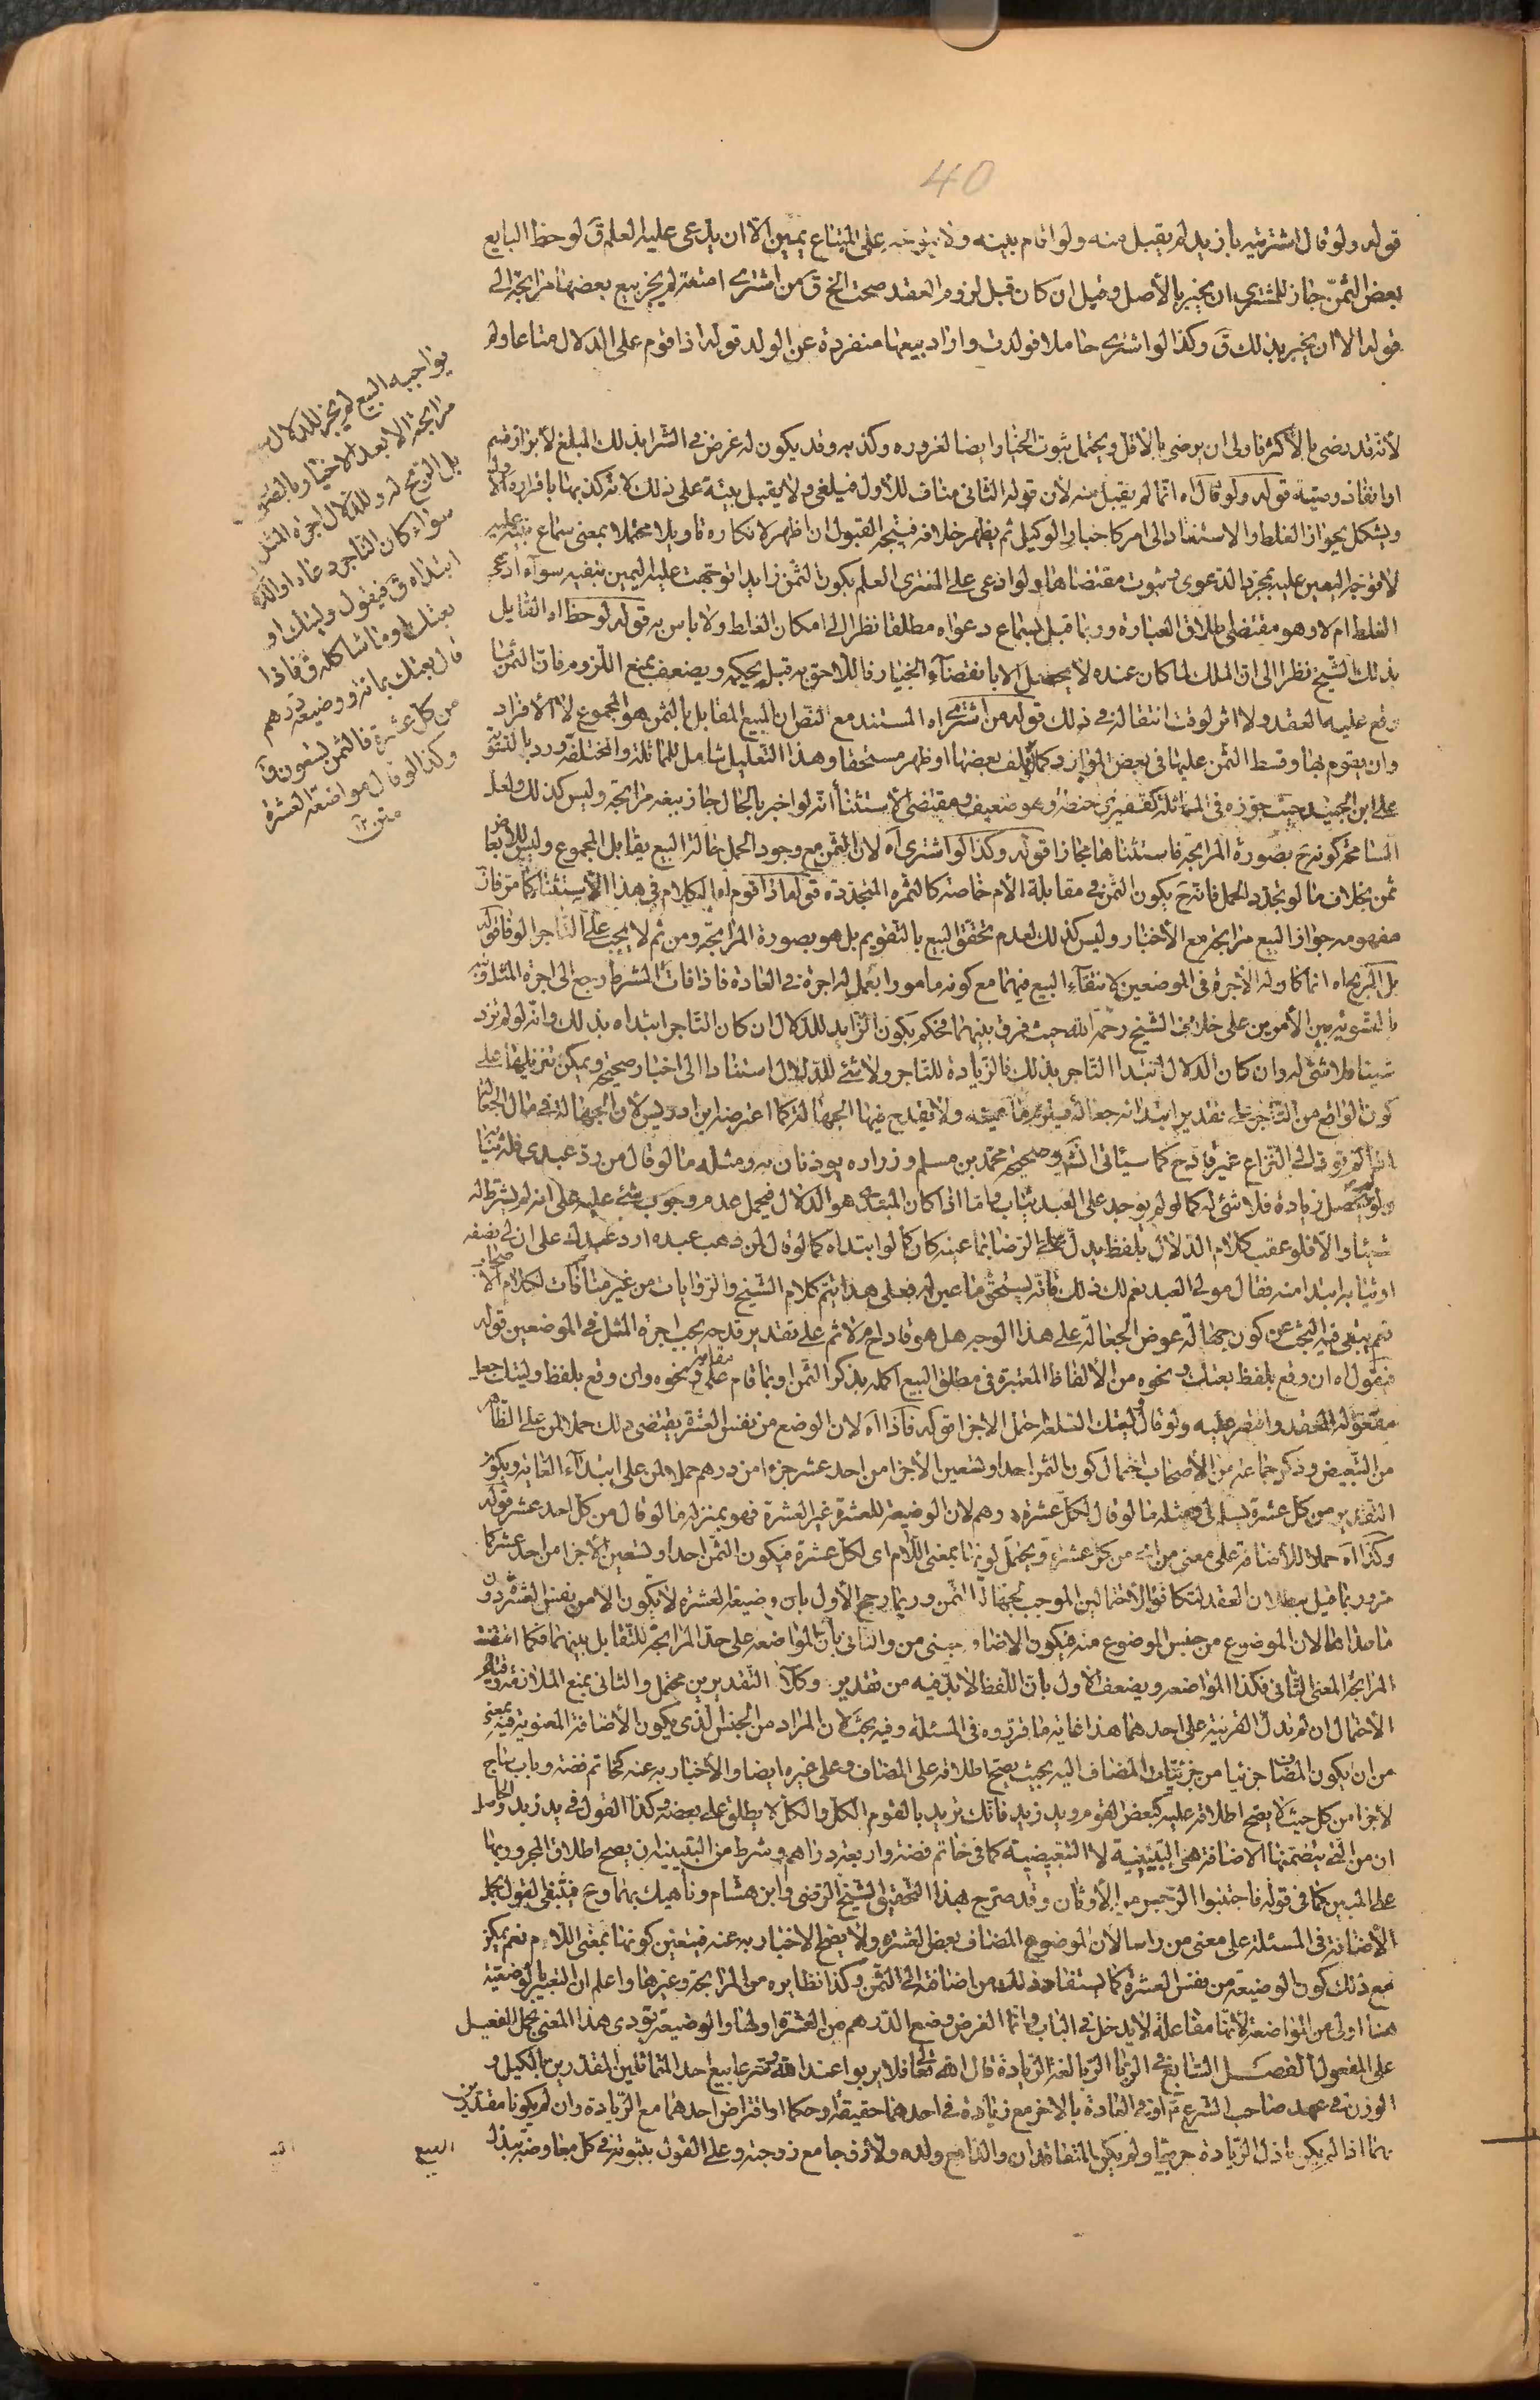 40
قوله ولو قال اشتريته بازيد لم يقبل منه ولو اقام بينه ولا يتوجه على المبتاع يمين الا ان يدعى عليه العلم ق لو حظ البايع
بعض الثمن جاز للمشترى ان يخبر بالأصل وقيل ان كان قبل لزوم العقد صحت الخ ق من اشترى امتعة لم يجز بيع بعضها مرابحة الى
قوله الا ان يخبر بذلك ق وكذا لو اشترى حاملا فولدت واراد بيعها منفردة عن الولد قوله اذا قوم على الدلال متاعا ولم
يواجبه البيع لم يجز للدلال
مرابحة الا بعد الاخبار بالصورة
بل الربح له وللدلال اجرة المثل
سواء كان التاجر دعاه او الدلال
ابتداه ق فيقول وليتك او
بعتك او ما شاكله ق فاذا
قال بعتك بمائة ووضيعة درهم
من كل عشرة فالثمن تسعون ق
وكذا لو قال مواضعة العشرة
متن ١٢
لأنه قد رضى بالأكثر فاولى ان يرضى بالأقل ويحتمل ثبوت الخيار ايضا لغروره وكذبه وقد يكون له غرض فى الشرا بذلك المبلغ لأبرار قسم
او انفاذ وصية قوله ولو قال آه انما لم يقبل منه لأن قوله الثانى مناف للأول فيلغى ولا يقبل بينة على ذلك لانه كذبها باقراره الأول
ويشكل بجواز الغلط والاستناد الى امر كاخبار الوكيل ثم يظهر خلافه فيتجه القبول ان اظهر لانكاره تاويلا محتملا بمعنى سماع بينته عليه
لا توجه اليمين عليه بمجرد الدعوى وثبوت مقتضاها ولو ادعى على المشترى العلم بكون الثمن زايدا توجهت عليه اليمين بنفيه سواء ادعى
الغلط ام لا وهو مقتضى اطلاق العبارة وربما قبل بسماع دعواه مطلقا نظرا الى امكان الغلط ولا باس به قوله لو حظ اه القايل
بذلك الشيخ نظرا الى ان الملك لما كان عنده لا يحصل الا بانقضاء الخيار فاللاحق به قبله بحكمه ويضعف بمنع اللزوم فان الثمن ما
وقع عليه العقد ولا اثر لوقت انتقاله فى ذلك قوله من اشترى اه المستند مع النص ان المبيع المقابل بالثمن هو المجموع لا الأفراد
وان يقوم بها وقسط الثمن عليها فى بعض الموارد كما لو تلف بعضها او ظهر مستحقا وهذا التعليل شامل للمماثلة والمختلفة ورد بالتسوية
على ابن الجنيد حيث جوزه فى المماثلة كقفيزى حنطة وهو ضعيف ومقتضى الأستثناء انه لو اخبر بالحال جاز بيعه مرابحة وليس كذلك ولعل
المسامحة كونه ح بصورة المرابحة فاستثناها مجازا قوله وكذا لو اشترى آه لان الثمن مع وجود الحمل حالة البيع يقابل المجموع وليس للأبعاض
ثمن بخلاف ما لو تجدد الحمل فانه ح يكون الثمن فى مقابلة الأم خاصة كالثمرة المتجددة قوله اذا قوم اه الكلام فى هذا الأستثناء كما مر فان
مفهومه جواز البيع مرابحة مع الأخبار وليس كذلك لعدم تحقق البيع بالتقويم بل هو بصورة المرابحة ومن ثم لا يجب على التاجر الوفاء قوله
بل الربح اه انما كا وله الأجرة فى الموضعين لانتفاء البيع فيهما مع كونه مامورا بعمل له اجرة فى العادة فاذا فات المشرط رجع الى اجرة المثل ونبه
بالتسوية بين الأمرين على خلاف الشيخ رحمه الله حيث فرق بينهما فحكم بكون الزايد للدلال ان كان التاجر ابتداه بذلك وانه لو لم يزد
شيئا فلا شئ له وان كان الدلال ابتدا التاجر بذلك فالزيادة للتاجر ولا شئ للدلال استنادا الى اخبار صحيحة ويمكن تنزيلها على
كون الواقع من التاجر على تقدير ابتدائه جعالة فيلزم ما عينه ولا يقدح فيها الجهالة كما اعترضه ابن ادريس لأن الجهالة فى مال الجعالة
اذا لم تؤد الى النزاع غير قادح كما سيأتى انشاء الله وصحيحة محمد بن مسلم وزراره يوذنان به ومثله ما لو قال من رد عبدى فله ثيابه
ولو لم يحصل زيادة فلا شئ له كما لو لم يوجد على العبد ثياب واما اذا كان المبتدى هو الدلال فيحمل عدم وجوب شئ عليه على انه لم يشترط له
شيئا والا فلو عقب كلام الدلال بلفظ يدل على الرضا بما عينه كان كما لو ابتداه كما لو قال لمن ذهب عبده ارد عبدك على ان لى نصفه
او ثيابه ابتدا منه فقال مولى العبد نعم لك ذلك فانه يستحق ما عين له فعلى هذا يتم كلام الشيخ والروايات من غير منافات لكلام الأصحاب
نعم ينبغى فيه البحث عن كون جهالة عوض الجعالة على هذا الوجه هل هو قادح ام لا ثم على تقدير قدحه يجب اجرة المثل فى الموضعين قوله
فيقول اه ان وقع بلفظ بعتك ونحوه من الألفاظ المعتبرة فى مطلق البيع اكمله بذكر الثمن او بما قام على ونحوه وان وقع بلفظ وليتك جعل
مفعوله العقد واقتصر عليه ولو قال وليتك السلعة احتمل الاجزا قوله فاذا آه لان الوضع من نفس العشرة يقتضى ذلك حملا لمن على الظاهر
من التبعيض وذكر جماعة من الأصحاب احتمال كون الثمن احدا وتسعين الا جزا من احد عشر جزءا من درهم حملا لمن على ابتداء الغاية ويكون
التقدير من كل عشرة تسلم لى ومثله ما لو قال لكل عشرة درهم لان الوضيعة للعشرة غير العشرة فهو بمنزلة ما لو قال من كل احد عشر قوله
وكذا آه حملا للأضافة على معنى من اى من كل عشرة ويحتمل لو نها بمعنى اللام اى لكل عشرة فيكون الثمن احدا وتسعين الا جزا من احد عشر كما
مر وربما قيل ببطلان العقد لتكافؤ الأحتمالين الموجب لجهالة الثمن وربما رجح الأول بان وضيعة العشرة لا يكون الا من نفس العشرة دون
ما عداها لان الموضوع من جنس الموضوع منه فيكون الاضافة بمعنى من والثانى بان المواضعة على حد المرابحة للتقابل بينهما فكما اقتضت
المرابحة المعنى الثانى فكذا المواضعة ويضعف الأول بان اللفظ لا بد فيه من تقدير وكلا التقديرين محتمل والثانى بمنع الملازمة وقيام
الأحتمال ان لم تدل القرينة على احدهما هذا غاية ما قرروه فى المسئلة وفيه بحث لان المراد من الجنس الذى يكون الأضافة المعنوية فيه بمعنى
من ان يكون المضاف جزئيا من جزئيات المضاف اليه بحيث يصح اطلاقه على المضاف وعلى غيره ايضا والأخبار به عنه كخاتم فضة وباب ساج
لا جزا من كل حيث لا يصح اطلاقه عليه كبعض القوم ويد زيد فانك تريد بالقوم الكل والكل لا يطلق على بعضه وكذا القول فى يد زيد والحاصل
ان من التى يتضمنها الاضافة هى التبيينية لا التبعيضية كما فى خاتم فضة واربعة دراهم وشرط من التبيينية ان يصح اطلاق المجرور بها
على المبين كما فى قوله فاجتنبوا الرجس من الأوثان وقد صرح بهذا التحقيق الشيخ الرضى وابن هشام وناهيك بهما وح فينتفى القول بحمل
الأضافة فى المسئلة على معنى من راسا لأن الموضوع المضاف بعض العشرة ولا يصح الاخبار به عنه فيتعين كونها بمعنى اللام نعم يمكن
مع ذلك كون الوضيعة من نفس العشرة كما يستفاد ذلك من اضافة الى الثمن وكذا نظايره من المرابحة وغيرهما واعلم ان التعبير بالوضيعة
هنا اولى من المواضعة لأنها مفاعلة لا يدخل فى الباب وانما الغرض وضع الدرهم من العشرة او لها والوضيعة تؤدى هذا المعنى بحمل الفعيل
على المفعول الفصل التاسع فى الربا الربا لغة الزيادة قال الله تعالى فلا يربوا عند الله وشرعا بيع احد المتماثلين المقدرين بالكيل و
الوزن فى عهد صاحب الشرع ع او فى العادة بالاخر مع زيادة فى احدهما حقيقة او حكما او اقتراض احدهما مع الزيادة وان لم يكونا مقدرين
بهما اذا لم يكن باذل الزيادة حربيا ولم يكن المتعاقدان والدا مع ولده ولا زوجا مع زوجته وعلى القول بثبوته فى كل معاوضة يبدل
البيع